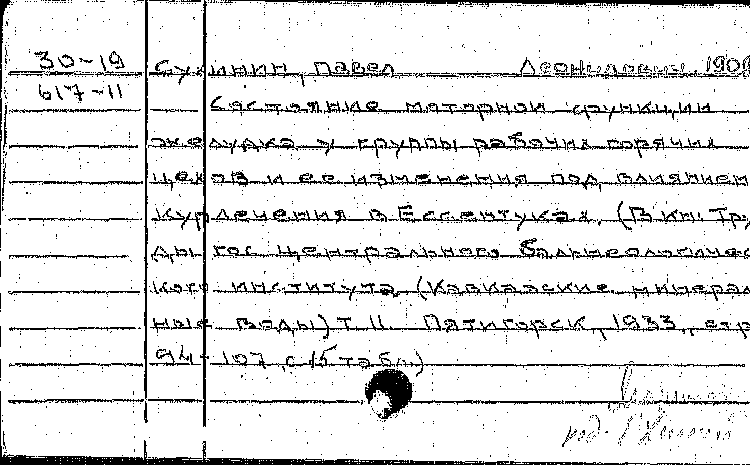 30-19 Сухинин, Павел Леонидович, 1900
617-11
Состояние моторной функции
желудка у группы рабочих горячих
цехов и ее изменения под влиянием
курлечения в Ессентуках. (В кн. Тру
ды гос. центрального бальнеологичес
кого института (Кавказские минерал
ные воды) т. II. Пятигорск, 1933, стр
94-107, с 15 табл.)